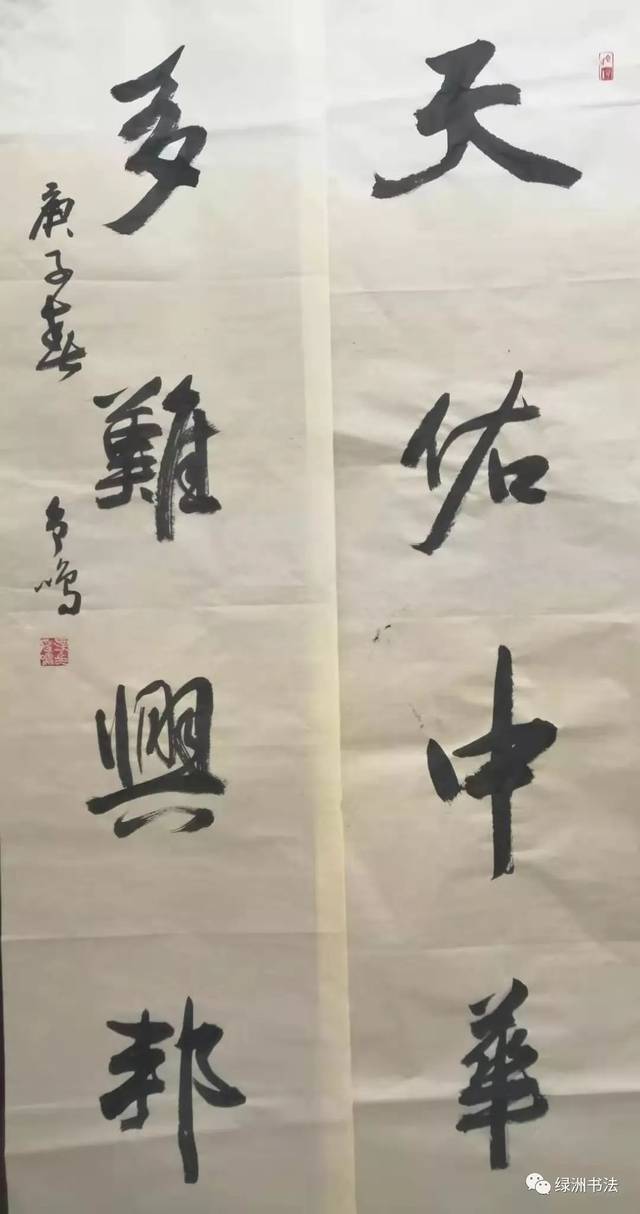 天佑中華
多難興邦
庚子春
绿洲书法